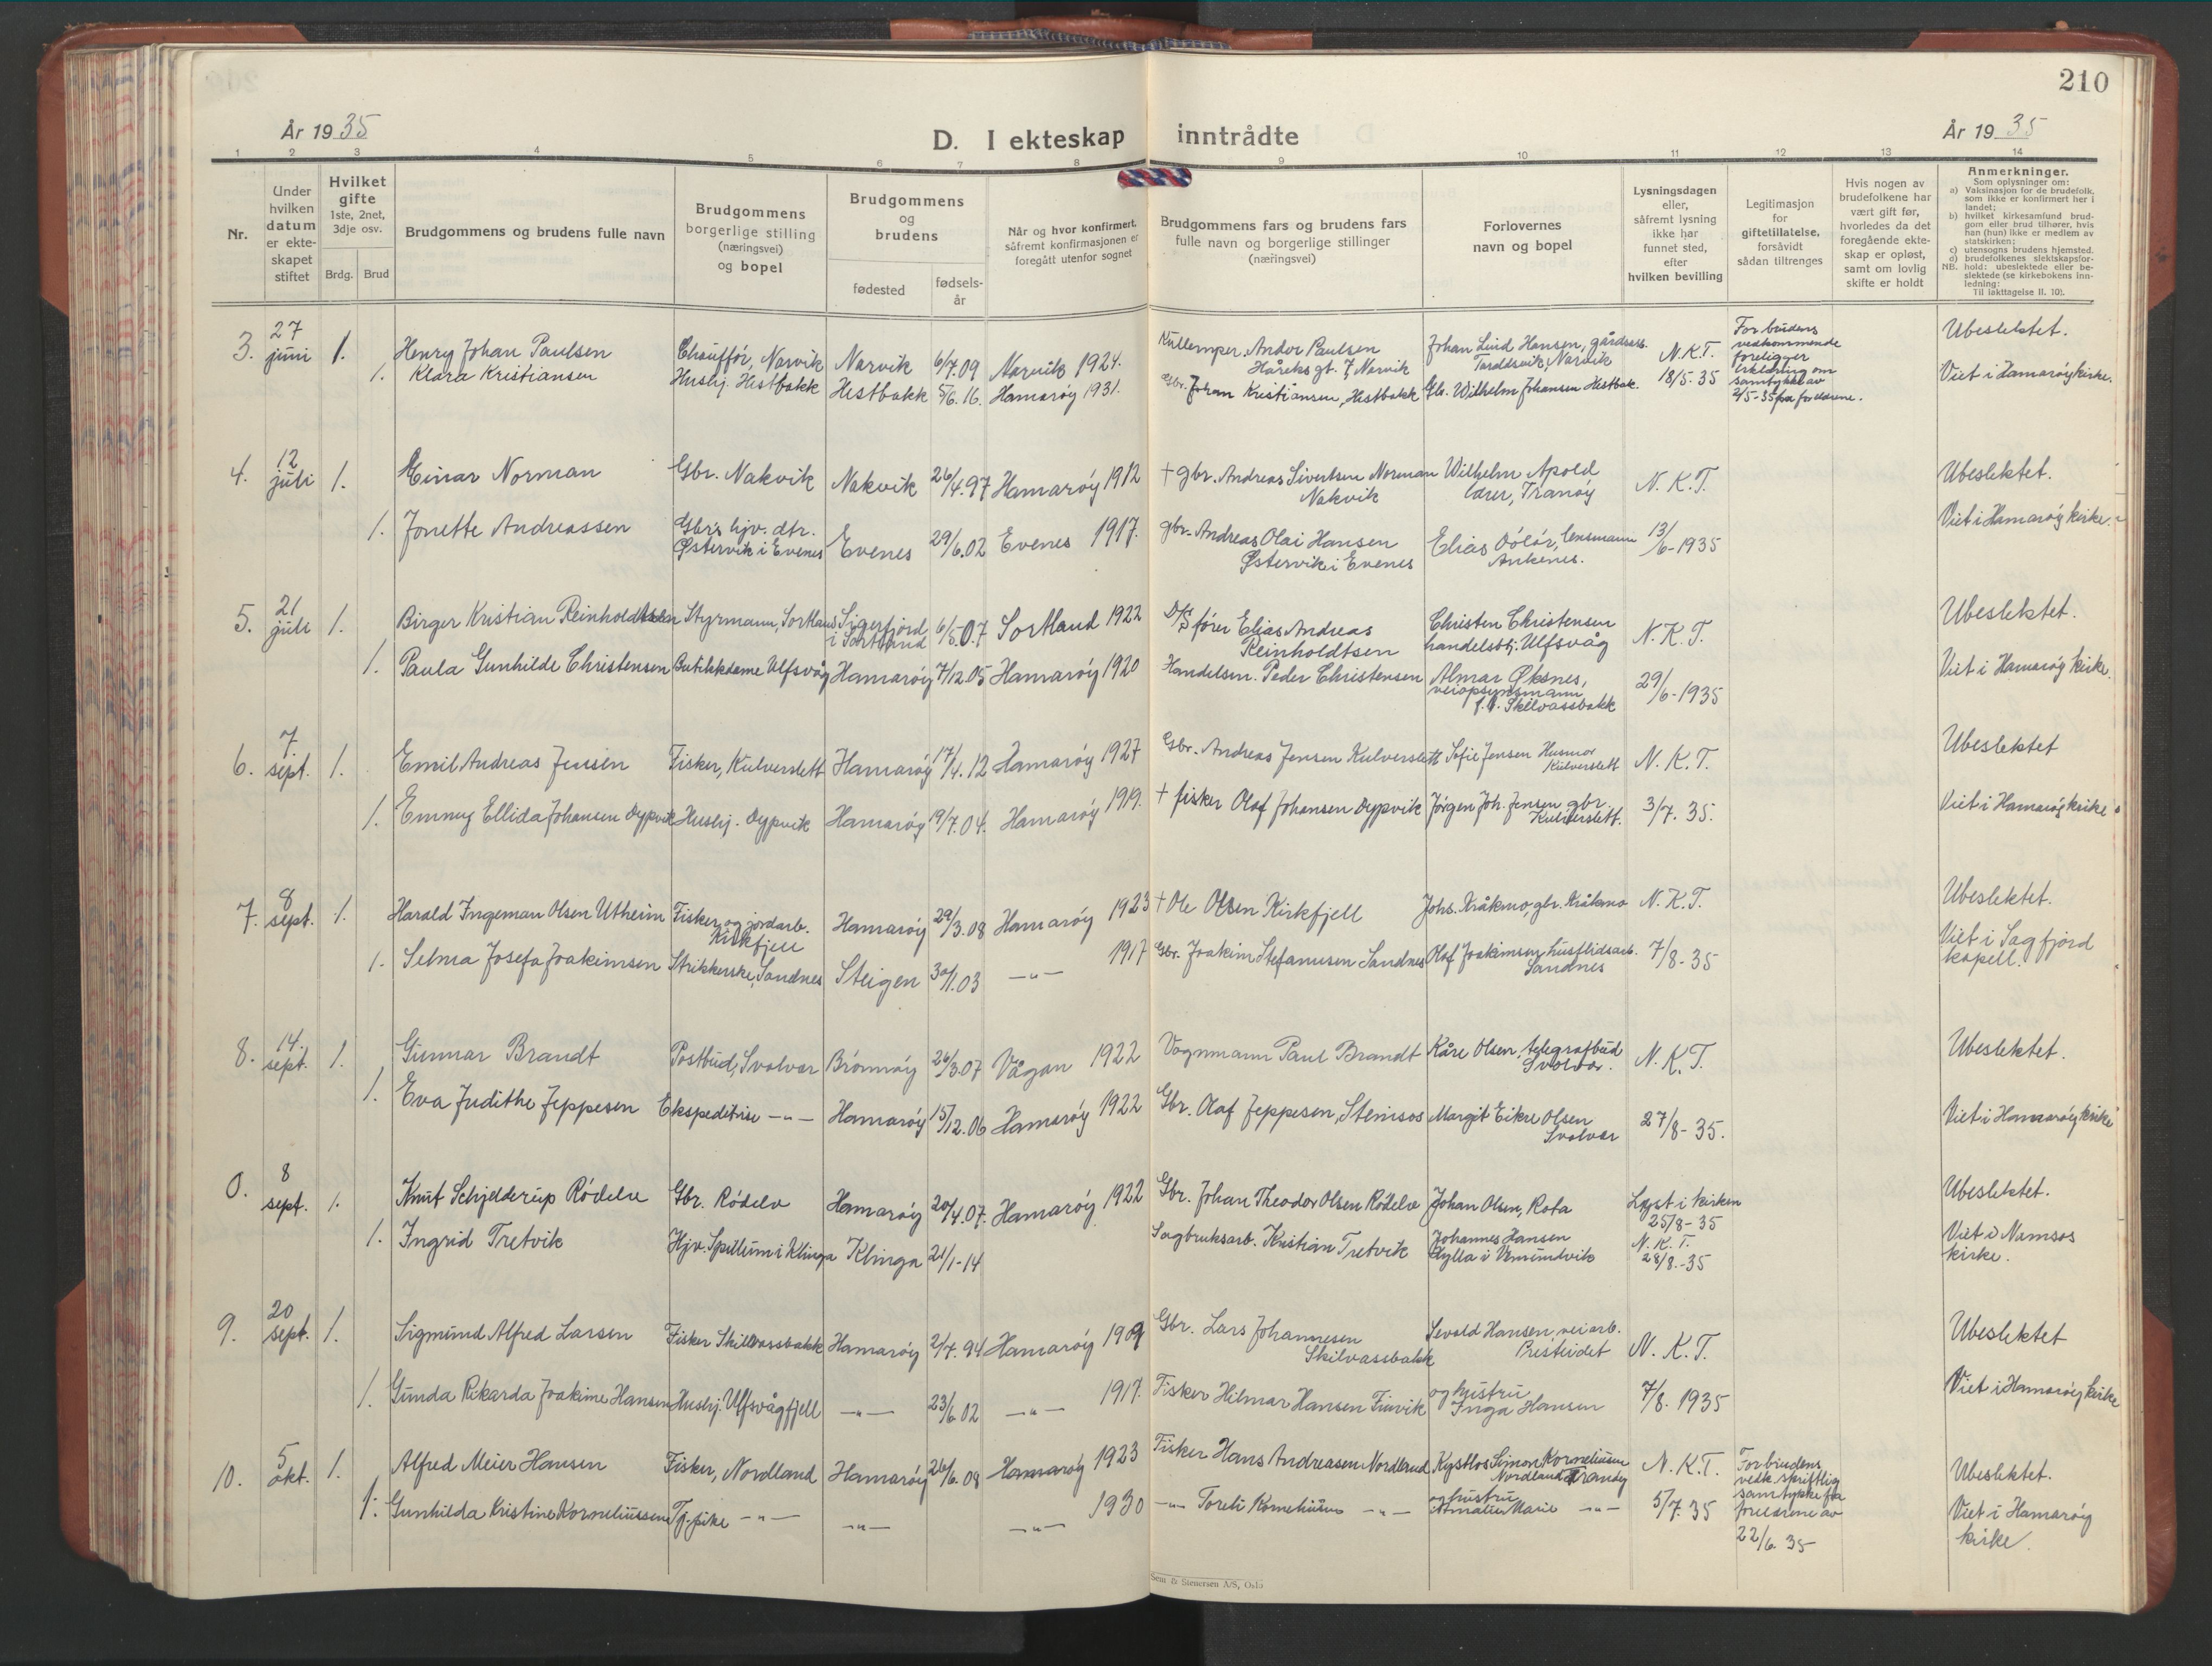 210
År 1935
D. I ekteskap inntrådte
År 1935
1 2 3 4 5 6 7 8 9 10 11 12 13 14
Nr.
Under hvilken datum er ekteskapet stiftet
Hvilket gifte
1ste, 2net, 3dje osv.
Brdg. Brud
Brudgommens og brudens fulle navn
Brudgommens borgerlige stilling (næringsvei) og bopel
Brudgommens og brudens
fødested
fødselsår
Når og hvor konfirmert, såfremt konfirmasjonen er foregått utenfor sognet
Brudgommens fars og brudens fars fulle navn og borgerlige stillinger (næringsvei)
Forlovernes navn og bopel
Lysningsdagen eller, såfremt lysning ikke har funnet sted, efter hvilken bevilling
Legitimasjon for giftetillatelse, forsåvidt sådan tiltrenges
Hvis nogen av brudefolkene har vært gift før, hvorledes da det foregående ekteskap er opløst, samt om lovlig skifte er holdt
Anmerkninger.
Som oplysninger om:
a) Vaksinasjon for de brudefolk, som ikke er konfirmert her i landet;
b) hvilket kirkesamfund brudgom eller brud tilhører, hvis han (hun) ikke er medlem av statskirken;
c) utensogns brudens hjemsted.
d) brudefolkenes slektskapsforhold: ubeslektede eller beslektede (se kirkebokens innledning:
NB.
Til iakttagelse II. 10).
3. 27 juni 1. Henry Johan Paulsen Chauffør, Narvik Narvik 6/7.09 Narvik 1924. Andor Paulsen Håreks gt. 7, Narvik Johan Lind Hansen, gårdsarb. Narvik N.K.T. 18/5. 35 For brudens vedkommende foreligger erklæring om samtykke av 2/5-35 fra foreldrene. Ubeslektet.
1. Klara Kristiansen Hushj. Hestbakk Hestbakk 5/6.16. Hamarøy 1931. Gbr. Johan Kristiansen, Hestbakk Gbr. Wilhelm Johansen Hestbak. Viet i Hamarøy kirke.
4. 12 juli 1. Einar Norman Gbr. Nakvik Nakvik 26/4.97 Hamarøy 1912 + gbr. Andreas Sivertsen Norman Nakvik Wilhelm Apold lærer, Tranøy N.K.T. Ubeslektet.
1. Jonette Andreassen Gbr's hjv. dtr. Østervik i Evenes Evenes 29/6.02 Evenes 1917. gbr. Andreas Olai Hansen Østervik i Evenes Elias lensmann Ankenes. 13/6-1935 Viet i Hamarøy kirke.
5. 21 juli 1. Birger Kristian Reinholdtsen Styrmann, Sortland Sigerfjord i Sortland 6/5.07 Sortland 1922 D/S fører Elias Andreas Reinholdtsen Christen Christensen handelsbtj. Ulfsvåg N.K.T. Ubeslektet.
1. Paula Gunhilde Christensen Butikkdame Ulfsvåg Hamarøy 7/12.05 Hamarøy 1920 Handelsm. Peder Christensen Almar Øksnes, veiopsynsmann Skilvassbakk 29/6-1935 Viet i Hamarøy kirke.
6. 7. sept. 1. Emil Andreas Jensen Fisker, Kulverslett Hamarøy 17/4.12 Hamarøy 1927 Gbr. Andreas Jensen Kulverslett Sofie Jensen Husmor Kulverslett N.K.T. Ubeslektet
1. Emmy Ellida Johansen Dypvik Hushj. Dypvik Hamarøy 19/7.04. Hamarøy 1919. + fisker Olaf Johansen Dypvik Jørgen Joh. Jensen gbr. Kulverslett. 3/7. 35. Viet i Hamarøy kirke
7. 8 sept. 1. Harald Ingeman Olsen Utheim Fisker og jordarb. Kirkfjell Hamarøy 29/3.08 Hamarøy 1923 + Ole Olsen Kirkfjell Johs. Kråkmo, gbr. Kråkmo N.K.T. Ubeslektet.
1. Selma Josefa Joakimsen Strikkerske, Sandnes Steigen 30/1.03 —"— 1917 Gbr. Joakim Stefanusen Sandnes Olaf Joakimsen, husflidsarb. Sandnes 7/8-35 Viet i Sagfjord kapell.
8. 14. sept. 1. Gunnar Brandt Postbud, Svolvær Brønnøy 26/3.07 Vågan 1922 Vognmann Paul Brandt Kåre Olsen, telegrafbud Svolvær. N.K.T. Ubeslektet.
1. Eva Judithe Jeppesen Ekspeditrise —"— Hamarøy 15/12.06 Hamarøy 1922 Gbr. Olaf Jeppesen, Stensos Margit Eikre Olsen Svolvær 27/8-35. Viet i Hamarøy kirke
0. 8 sept. 1. Knut Schjelderup Rødelv Gbr. Rødelv Hamarøy 20/4.07. Hamarøy 1922 Gbr. Johan Theodor Olsen Rødelv Johan Olsen, Rota Lyst i kirken 25/8-35 Ubeslektet.
1. Ingrid Tretvik Hjv. Spillum i Klinga Klinga 21/1-14 Sagbruksarb. Kristian Tretvik Johannes Hansen Hylla i Vemundvik N.K.T. 28/8.-35 Viet i Namsos kirke.
9. 20 sept. 1. Sigmund Alfred Larsen Fisker Skillvassbakk Hamarøy 2/7.94 Hamarøy 1909 Gbr. Lars Johannesen Skilvassbakk Sevald Hansen, veiarb. Presteidet N.K.T. Ubeslektet
1. Gunda Rikarda Joakime Hansen Hushj. Ulfsvågfjell —"— 23/6.02 —"— 1917. Fisker Hilmar Hansen Finvik og hustru Inga Hansen 7/8. 1935 Viet i Hamarøy kirke
10. 5 okt. 1. Alfred Meier Hansen Fisker, Nordland Hamarøy 26/6.08 Hamarøy 1923 Fisker Hans Andreasen Nordland Kystlos Simon Korneliussen Nordland, Tranøy N.K.T. For brudens vedk. skriftlig samtykke fra foreldrene av 22/6. 35 Ubeslektet.
1. Gunhilda Kristine Korneliussen Tj. pike —"— —"— —"— 1930 —"— Toreli Korneliussen —"— og hustru Amalie Marie —"— 5/7. 35 Viet i Hamarøy kirke.
Sem & Stenersen A/S, Oslo